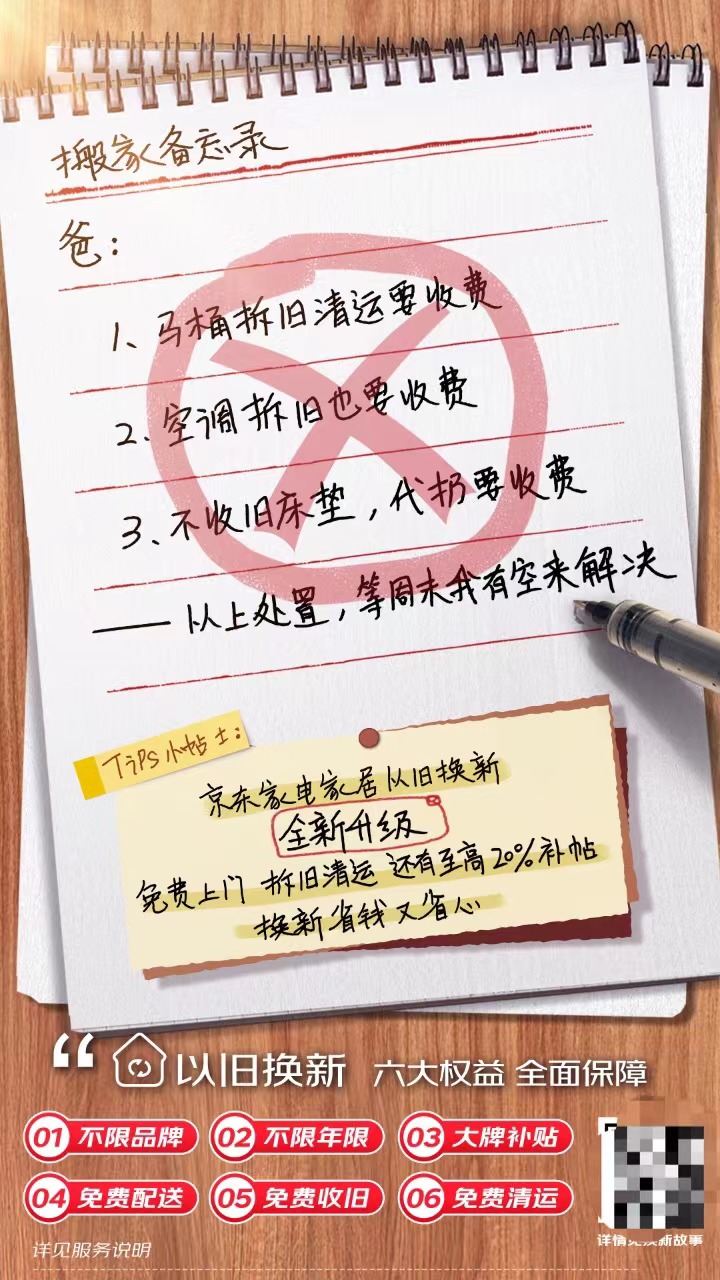 搬家备忘录
爸：
1、马桶拆旧清运要收费
2、空调拆旧也要收费
3、不收旧床垫，代扔要收费
——以上处置，等周末我有空来解决
TiPS小帖士：
京东家电家居以旧换新
全新升级
免费上门 拆旧清运 还有至高20%补帖
换新省钱又省心
“ 以旧换新 六大权益 全面保障
01 不限品牌 02 不限年限 03 大牌补贴
04 免费配送 05 免费收旧 06 免费清运
详情见换新故事
详见服务说明